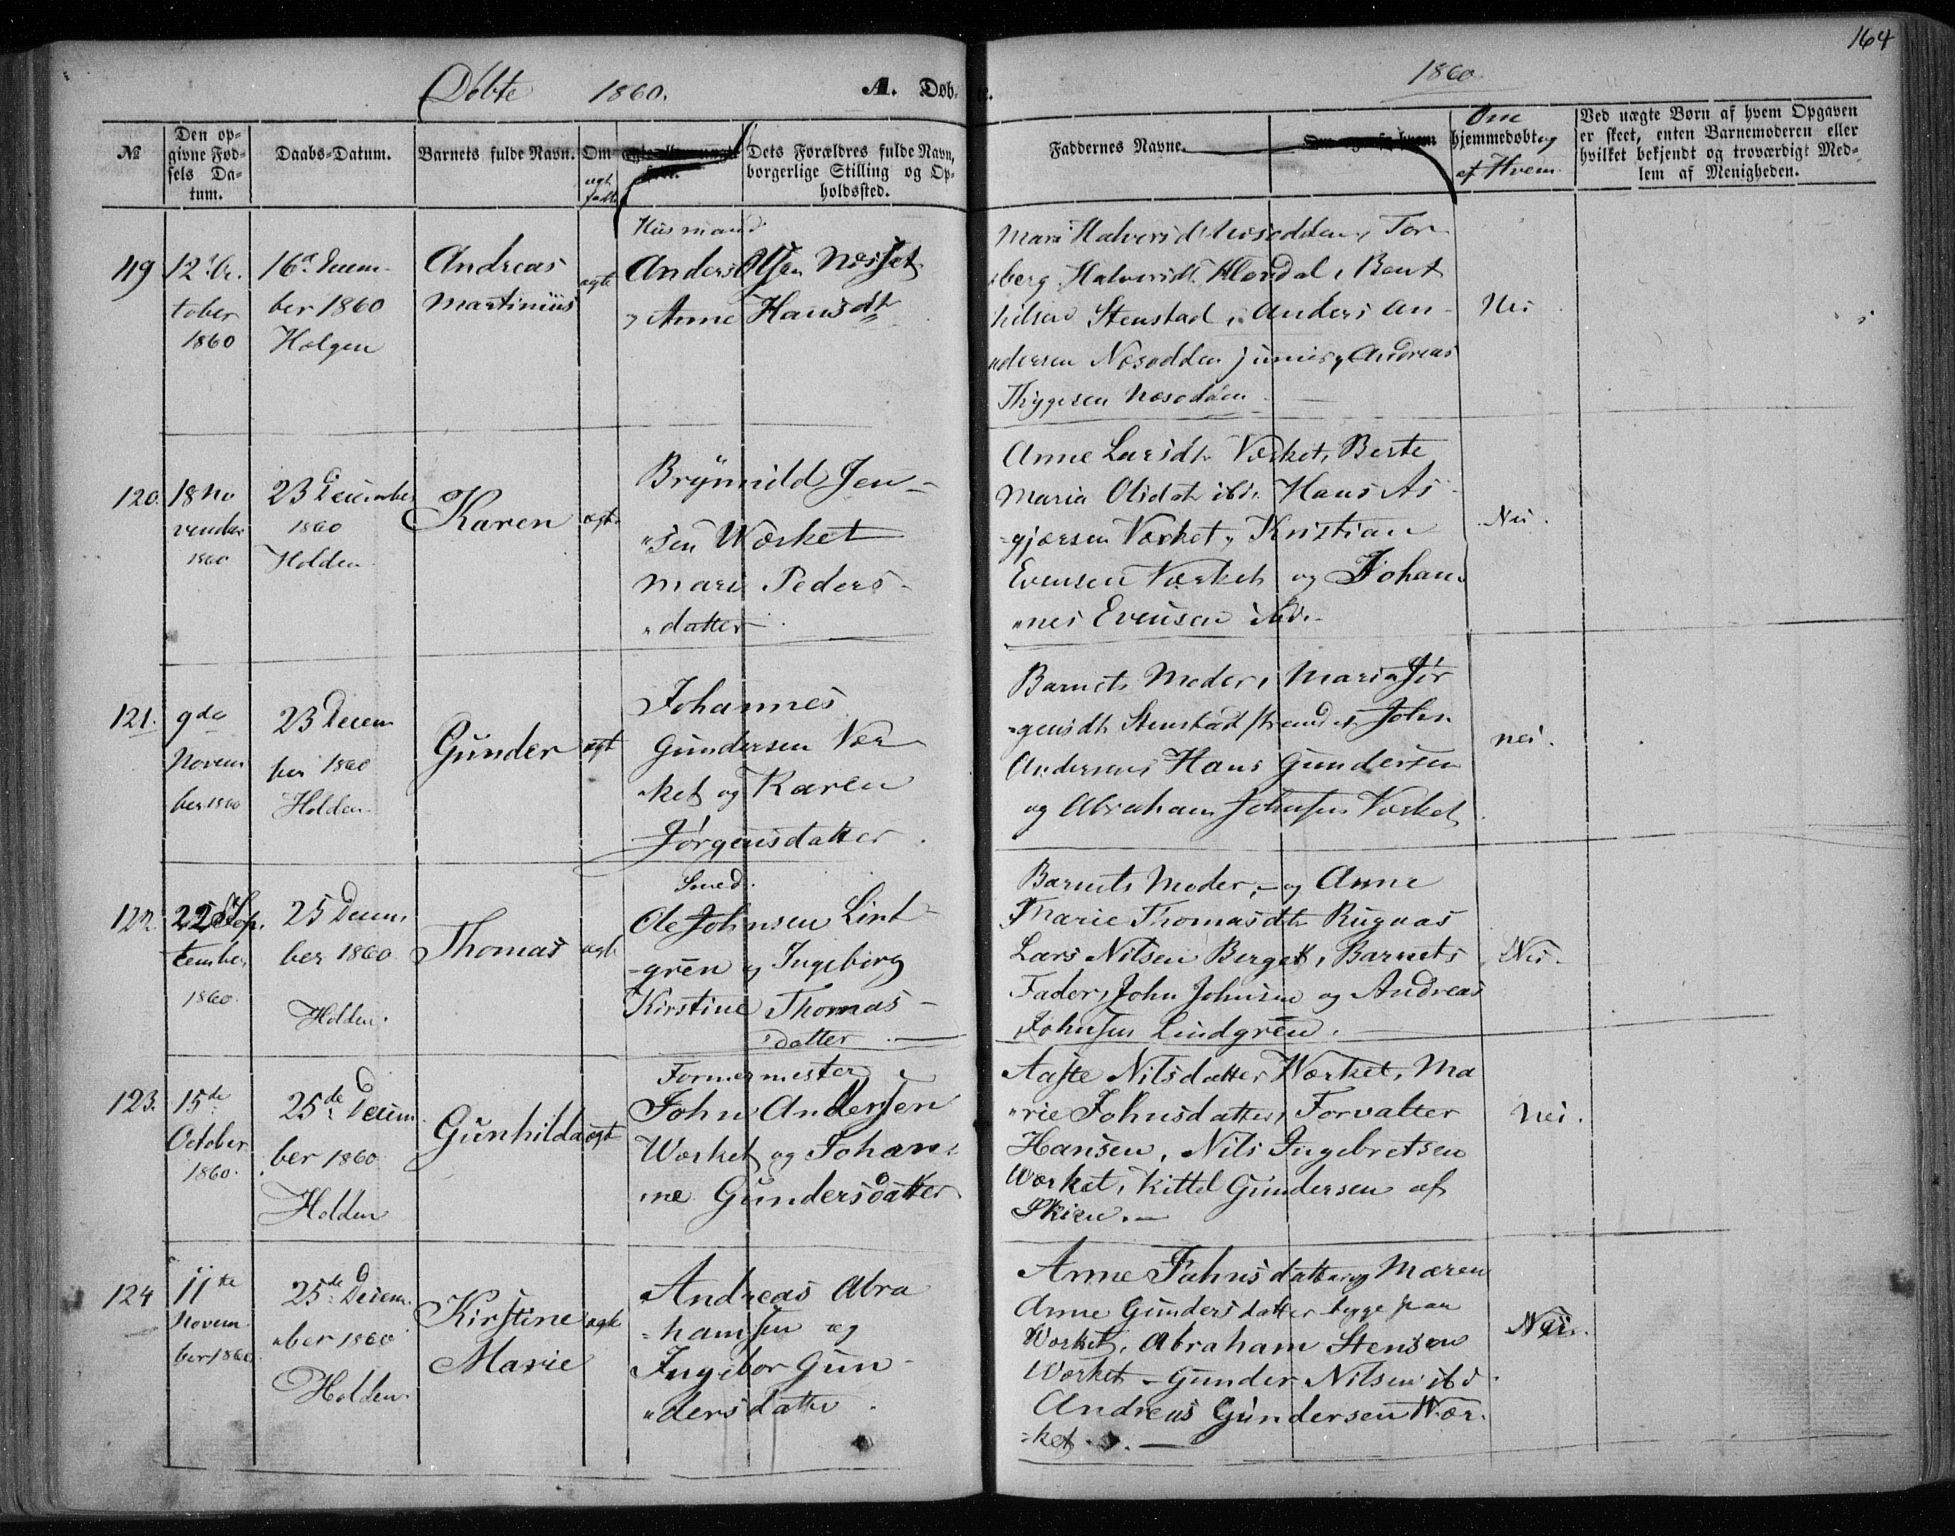 164
Döbte 1860. A. Döb- te. 1860
№
Den op-
givne Fød-
sels Da-
tum.
Daabs-Datum.
Barnets fulde Navn.
Om
ægte
født
Dets Forældres fulde Navn,
borgerlige Stilling og Op-
holdssted.
Faddernes Navne.
Om
hjemmedøbt og
af Hvem
Ved uægte Børn af hvem Opgaven
er skeet, enten Barnemoderen eller
hvilket bekjendt og troværdigt Med-
lem af Menigheden.
119
12te Oc-
tober
1860
16de Decem-
ber 1860
Helgen
Andreas
Martinius
ægte
Husmand
Anders Olsen Næsset
, Anne Hansdtr
Mari Halversdtr Næsodden, Tor-
berg Halversdtr
Stenstad, Anders An-
dersen Næsodden junior, Andreas
Thygesen Næsodden
Nei
120.
18 No
vember
1860
23 December
1860
Holden
Karen
ægte
Brynnild Jen-
"sen Wærket
Mari Peders-
"datter
Anne Larsdtr Værket, Berte
Maria Olsdatr ibid. Hans As-
-gjærsen Værket, Kristian
Evensen Værket og Johan-
"nes Evensen ibid.
Nei.
121.
9de
Novem
ber 1860
23 Decem
ber 1860
Holden
Gunder
ægt
Johannes
Gundersen Vær
-ket og Karen
Jørgensdatter.
Barnets Moder, Maria Jør
-gensdtr Stenstadstranden, John
Andersen, Hans Gundersen
og Abraham Johnsen Værket.
nei.
122.
22 Sep.
tember
1860.
25 Decem
ber 1860
Holden.
Thomas
ægte
Smed.
Ole Johnsen Lind-
-gren og Ingeborg
Kirstine Thomas-
"datter.
Barnets Moder, og Anne
Marie Thomasdtr Rugaas
Lars Nilsen Berget, Barnets
Fader, John Johnsen og Andreas
Johnsen Lindgren.
Nei.
123.
15de
October
1860.
25de Decem
ber 1860
Holden
Gunhilda
ægte
Formermester
John Andersen
Wærket og Johan-
"ne Gundersdatter
Aaste Nilsdatter Wærket, Ma
"rie Johnsdatter, Forvalter
Hansen, Nils Ingebretsen
Wærket, Kittel Gundersen af
Skien.
Nei.
124
11te
Novem
ber 1860.
25de Decem.
"ber 1860
Holden.
Kirstine
Marie
ægte
Andreas Abra
-hamsen og
Ingebor Gun-
"dersdatter.
Anne Johnsdatter og Maren
Anne Gundersdatter begge paa
Wærket, Abraham Stensen
Wærket - Gunder Nilsen ibid.
Andreas Gundersen Wær-
-ket.
Nei.